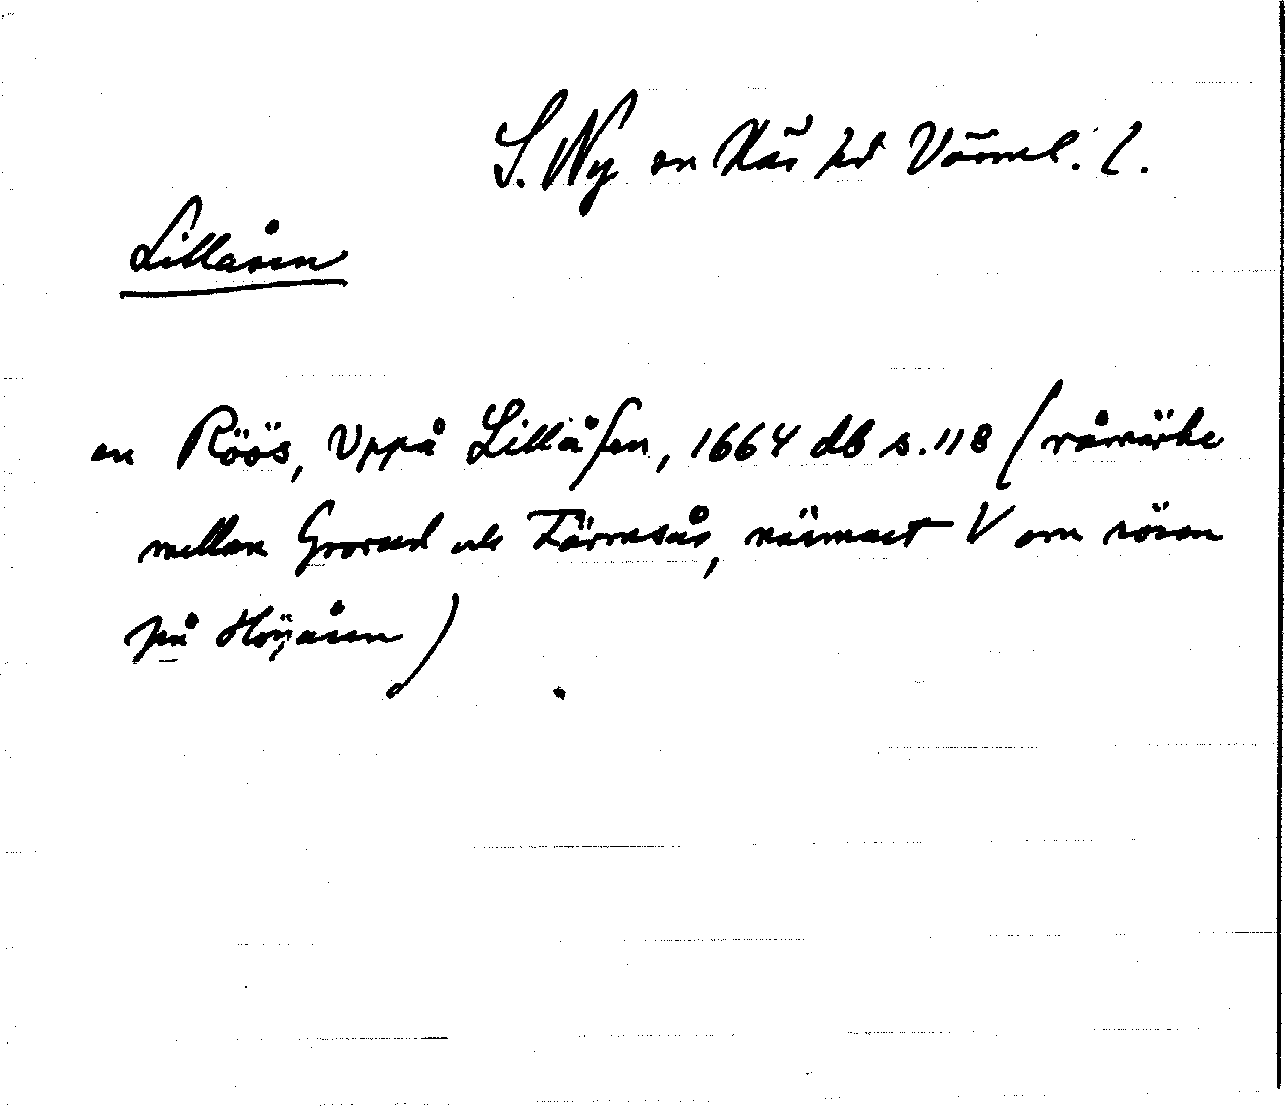 S. Ny sn Näs hd Värml. l.
Lillåsen
en Röös, Uppå Lillåsen, 1664 db s. 118 (råmärke
mellan Grorud och Tärnsås, närmast V om rösen
på Höjåsen)